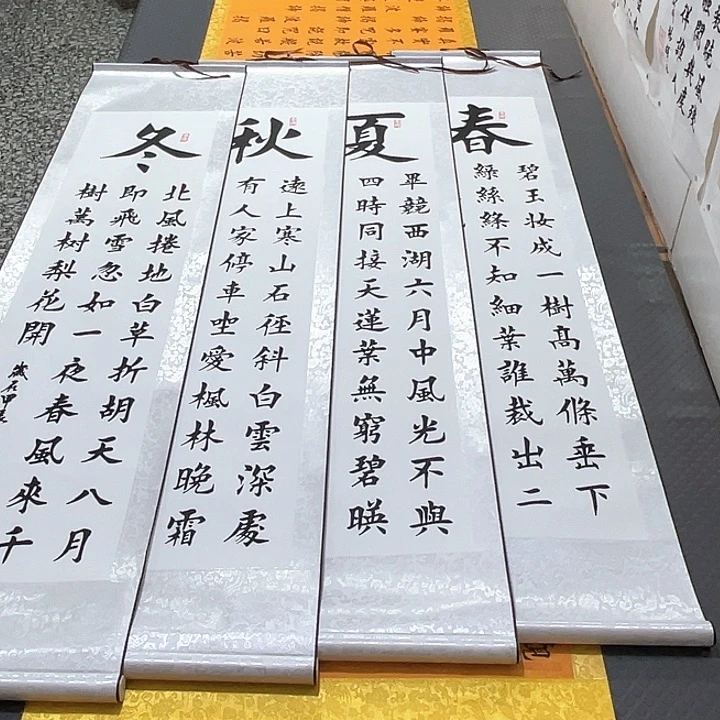 春
碧玉妆成一樹高萬條垂下
綠絲絛不知細葉誰裁出二
夏
畢競西湖六月中風光不與
四時同接天蓮葉無窮碧暎
秋
遠上寒山石徑斜白雲深處
有人家停車坐愛楓林晚霜
冬
北風捲地白草折胡天八月
即飛雪忽如一夜春風來千
樹萬树梨花開
歲在甲辰